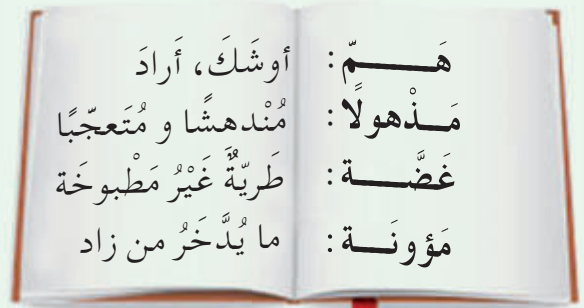 هَـــــمّ : أوشَكَ، أَرادَ
مَــذْهولًا : مُنْدهشًا و مُتَعجّبًا
غَضَّـــــة : طَريّةٌ غَيْرُ مَطْبوخَة
مَؤونَـــة : ما يُدَّخَرُ من زاد